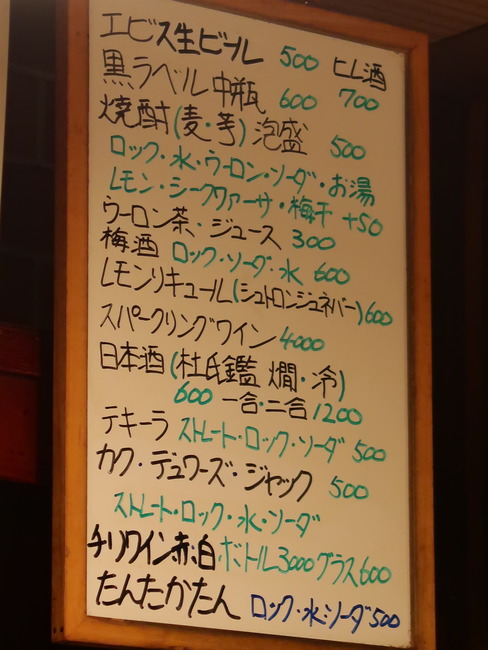 エビス生ビール 500 ヒレ酒
黒ラベル中瓶 600 700
焼酎(麦・芋)泡盛 500
ロック・水・ウーロン・ソーダ・お湯
レモン・シークヮーサ・梅干 +50
ウーロン茶・ジュース 300
梅酒 ロック・ソーダ・水 600
レモンリキュール(シュトロンジュネバー)600
スパークリングワイン 4000
日本酒(杜氏鑑 燗・冷)
600 一合・二合 1200
テキーラ ストレート・ロック・ソーダ 500
カク・デュワーズ・ジャック 500
ストレート・ロック・水・ソーダ
チリワイン赤・白 ボトル3000グラス600
たんたかたん ロック・水・ソーダ500